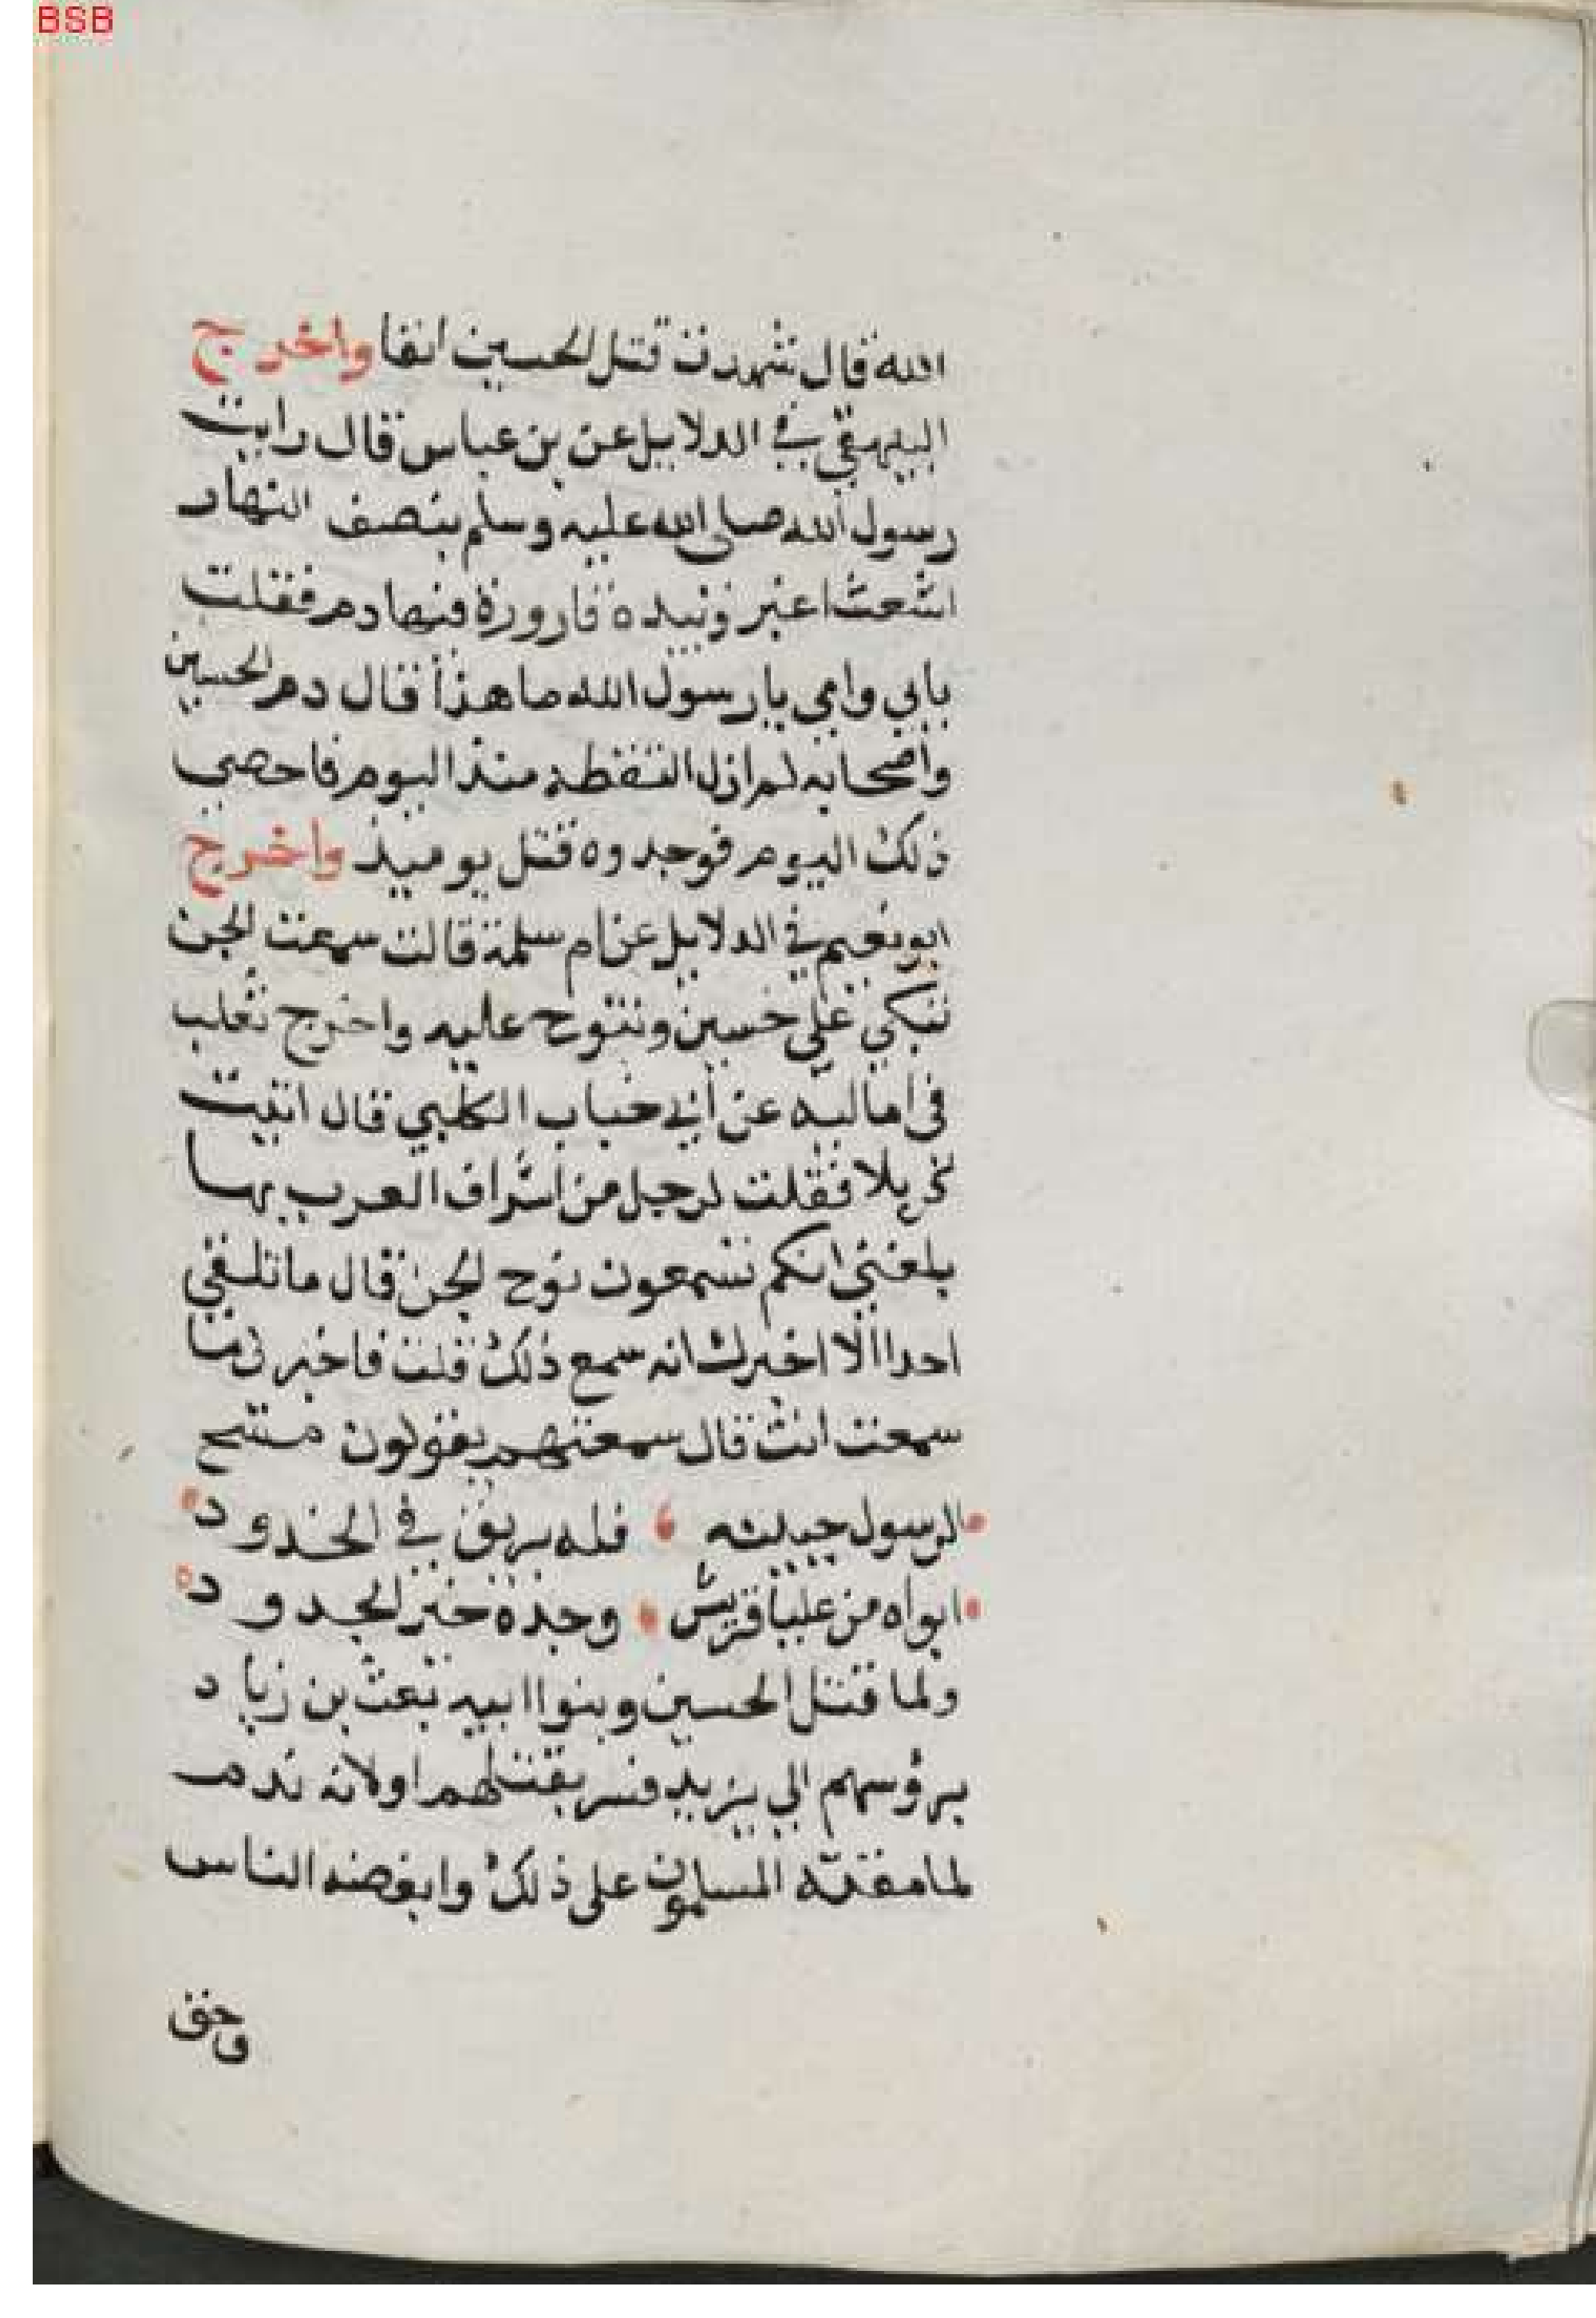 BSB
الله قال شهدت قتل الحسين انفا واخرج
البيهقي في الدلايل عن بن عباس قال رايت
رسول الله صلى الله عليه وسلم بنصف النهار
اشعث اغبر وبيده قارورة فيها دم فقلت
بابي وامي يا رسول الله ما هذا قال دم الحسين
واصحابه لم ازل التقطه منذ اليوم فاحصي
ذلك اليوم فوجدوه قتل يوميذ واخرج
ابو نعيم في الدلايل عن ام سلمة قالت سمعت الجن
تبكي على حسين وتنوح عليه واخرج ثعلب
في اماليه عن أبي خباب الكلبي قال اتيت
كربلا فقلت لرجل من اشراف العرب بها
بلغني انكم تسمعون نوح الجن قال ما تلقي
احدا الا اخبرك انه سمع ذلك قلت فاخبرني ما
سمعت انت قال سمعتهم يقولون مسح
الرسول جبينه فله بريق في الخدود
ابواه من عليا قريش وجده خير الجدود
ولما قتل الحسين وبنوا ابيه بعث بن زياد
برؤسهم الي يزيد فسر بقتلهم اولا ثم ندم
لما مقته المسلمون على ذلك وابغضه الناس
وحق